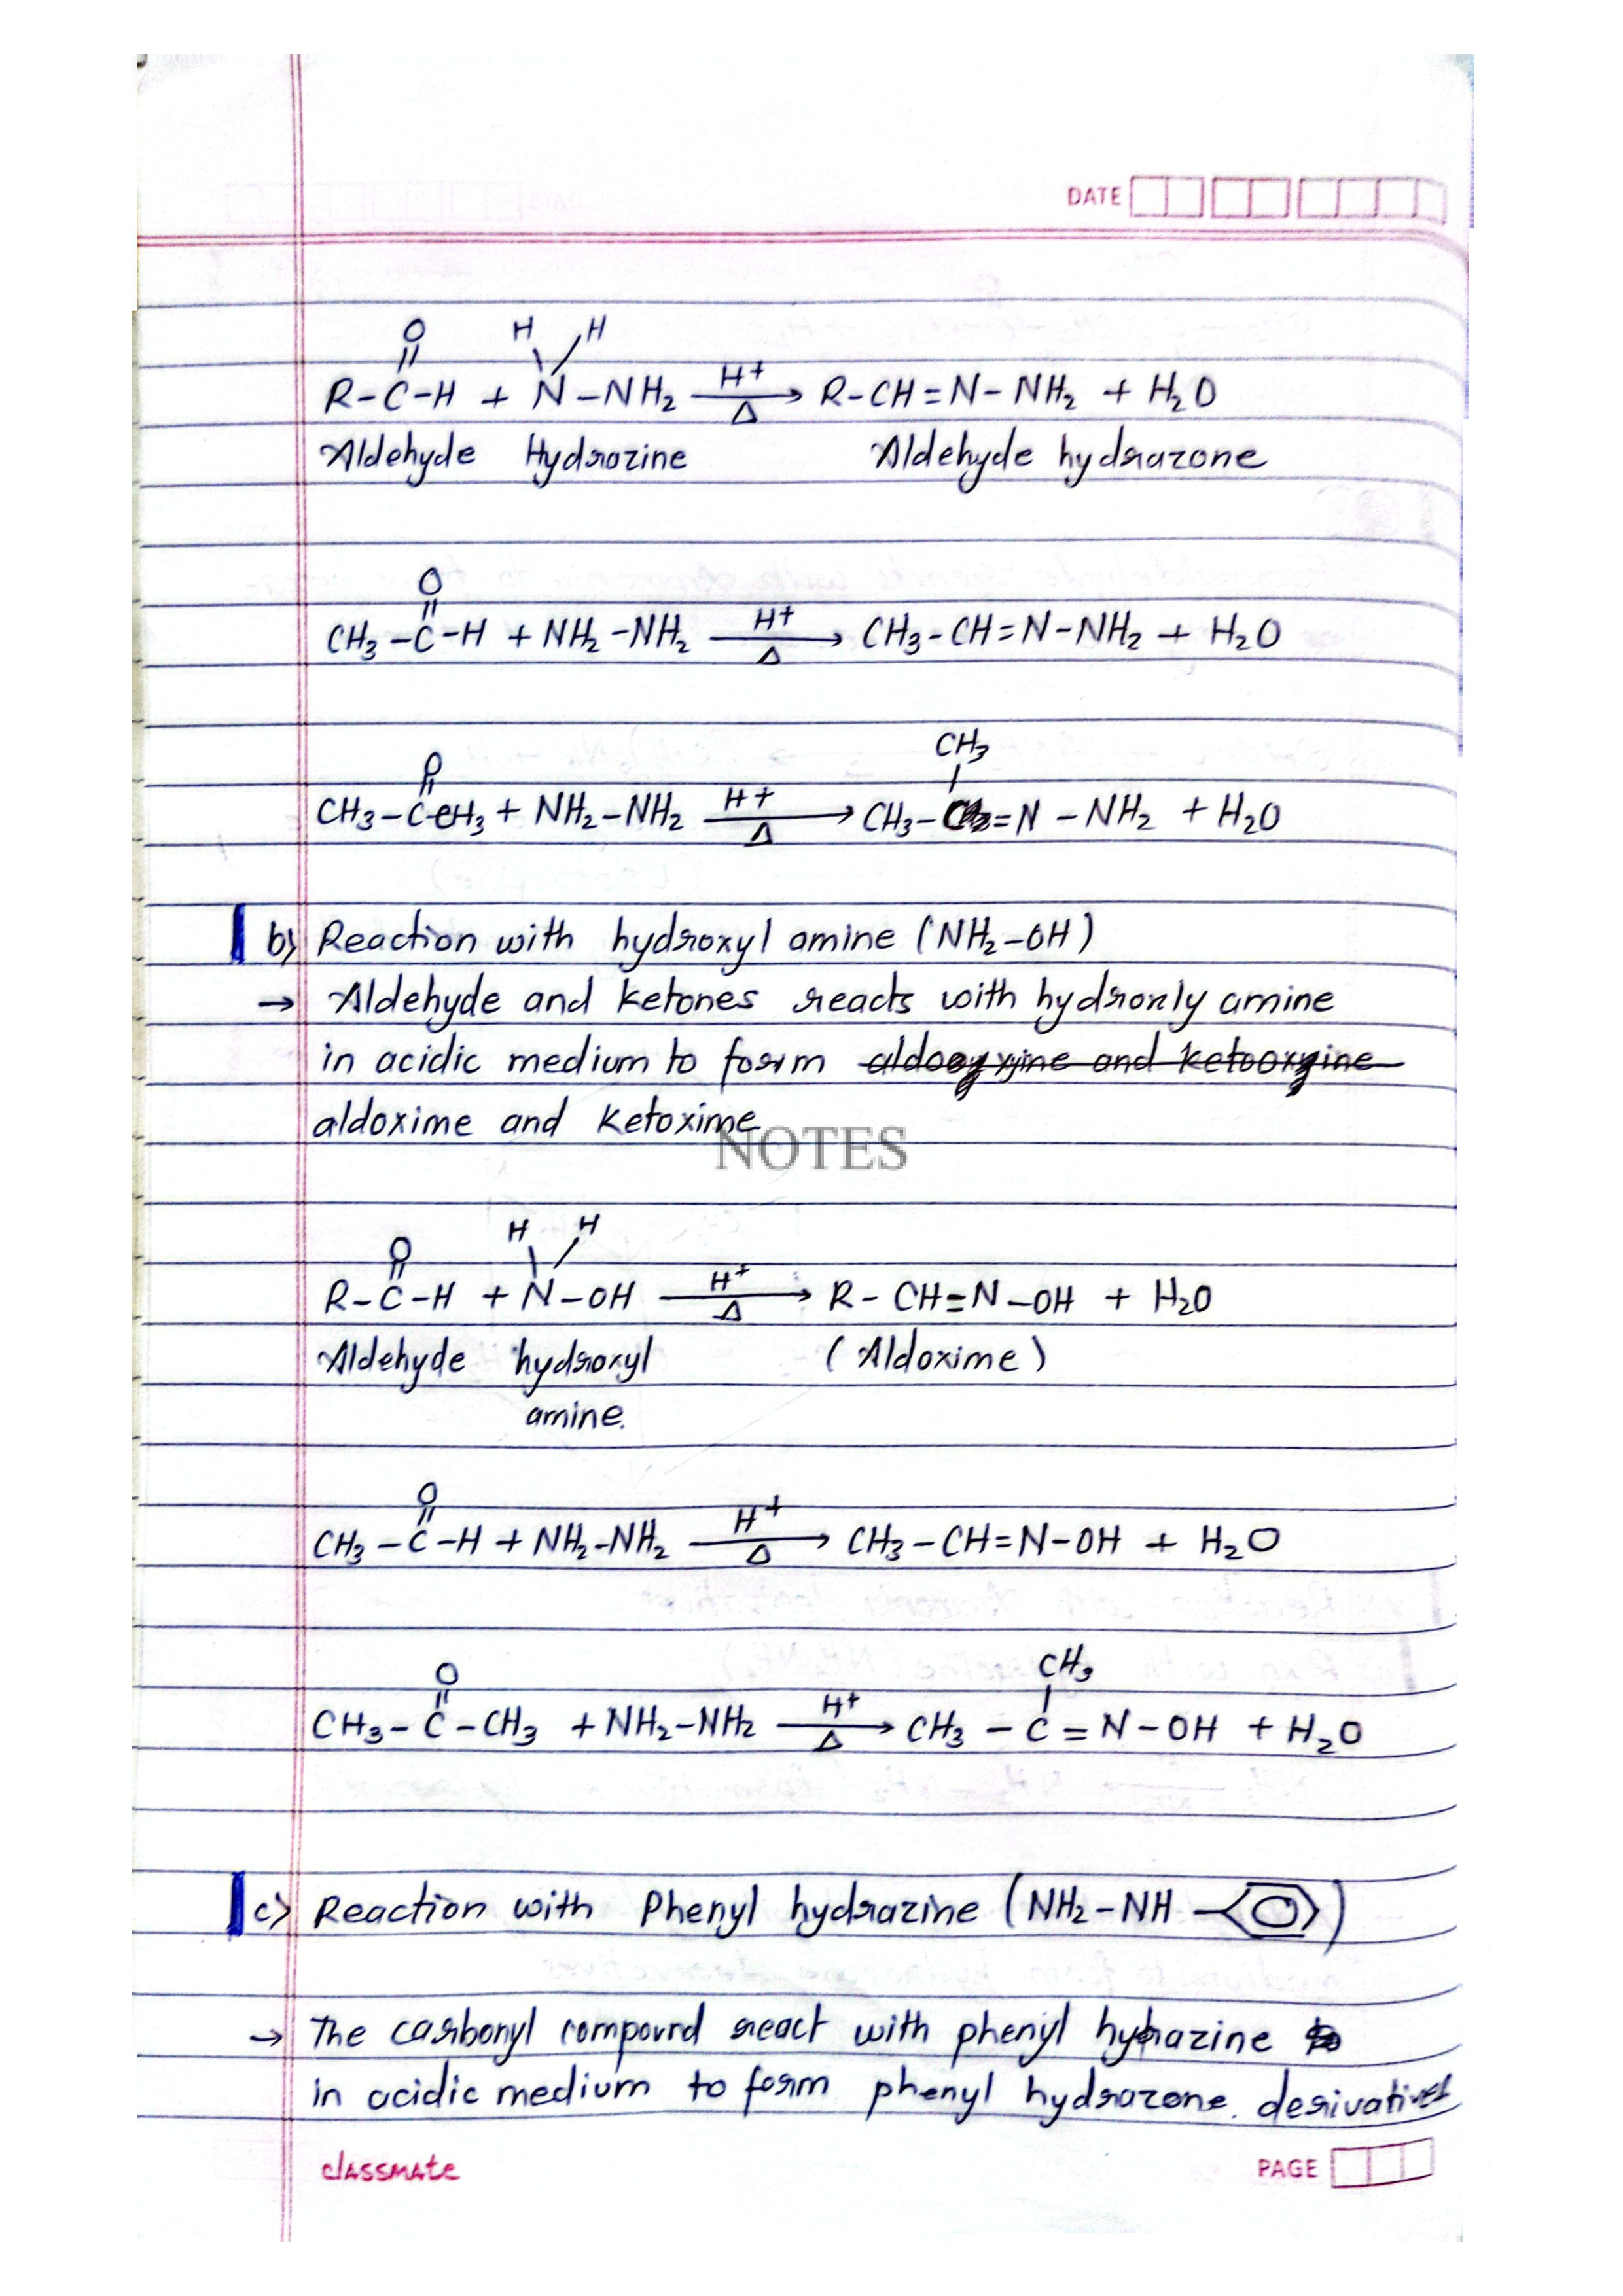 DATE
O H H
R-C-H + N-NH₂ H+ Δ → R-CH=N-NH₂ + H₂O
Aldehyde Hydrozine Aldehyde hydrazone
O
CH₃-C-H + NH₂-NH₂ H+ Δ → CH₃-CH=N-NH₂ + H₂O
O CH₃
CH₃-C-CH₃ + NH₂-NH₂ H+ Δ → CH₃-C=N-NH₂ + H₂O
b) Reaction with hydroxyl amine (NH₂-OH)
→ Aldehyde and ketones reacts with hydroxly amine
in acidic medium to form
aldoxime and Ketoxime
NOTES
O H H
R-C-H + N-OH H+ Δ → R-CH=N-OH + H₂O
Aldehyde hydroxyl (Aldoxime)
amine.
O
CH₃-C-H + NH₂-NH₂ H+ Δ → CH₃-CH=N-OH + H₂O
O CH₃
CH₃-C-CH₃ + NH₂-NH₂ H+ Δ → CH₃-C=N-OH + H₂O
c) Reaction with Phenyl hydrazine (NH₂-NH-)
→ The carbonyl compound react with phenyl hyhazine
in acidic medium to form phenyl hydrazone. derivatives
classmate PAGE